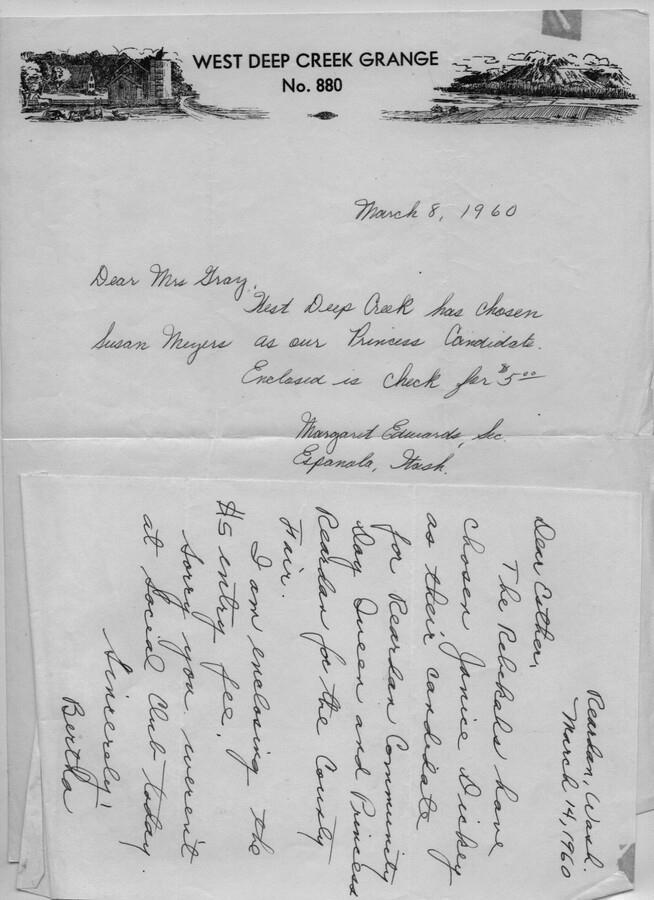 WEST DEEP CREEK GRANGE
No. 880
March 8, 1960
Dear Mrs Gray,
West Deep Creek has chosen
Susan Meyers as our Princess Candidate.
Enclosed is check for $5.00
Margaret Edwards, Sec.
Espanola, Wash.
Reardan, Wash.
March 14, 1960
Dear Esther,
The Rebekahs have
chosen Janice Dickey
as their candidate
for Reardan Community
Day Queen and Princess
Reardan for the County
Fair.
I am enclosing the
$5 entry fee.
Sorry you weren't
at Social Club today.
Sincerely,
Bertha